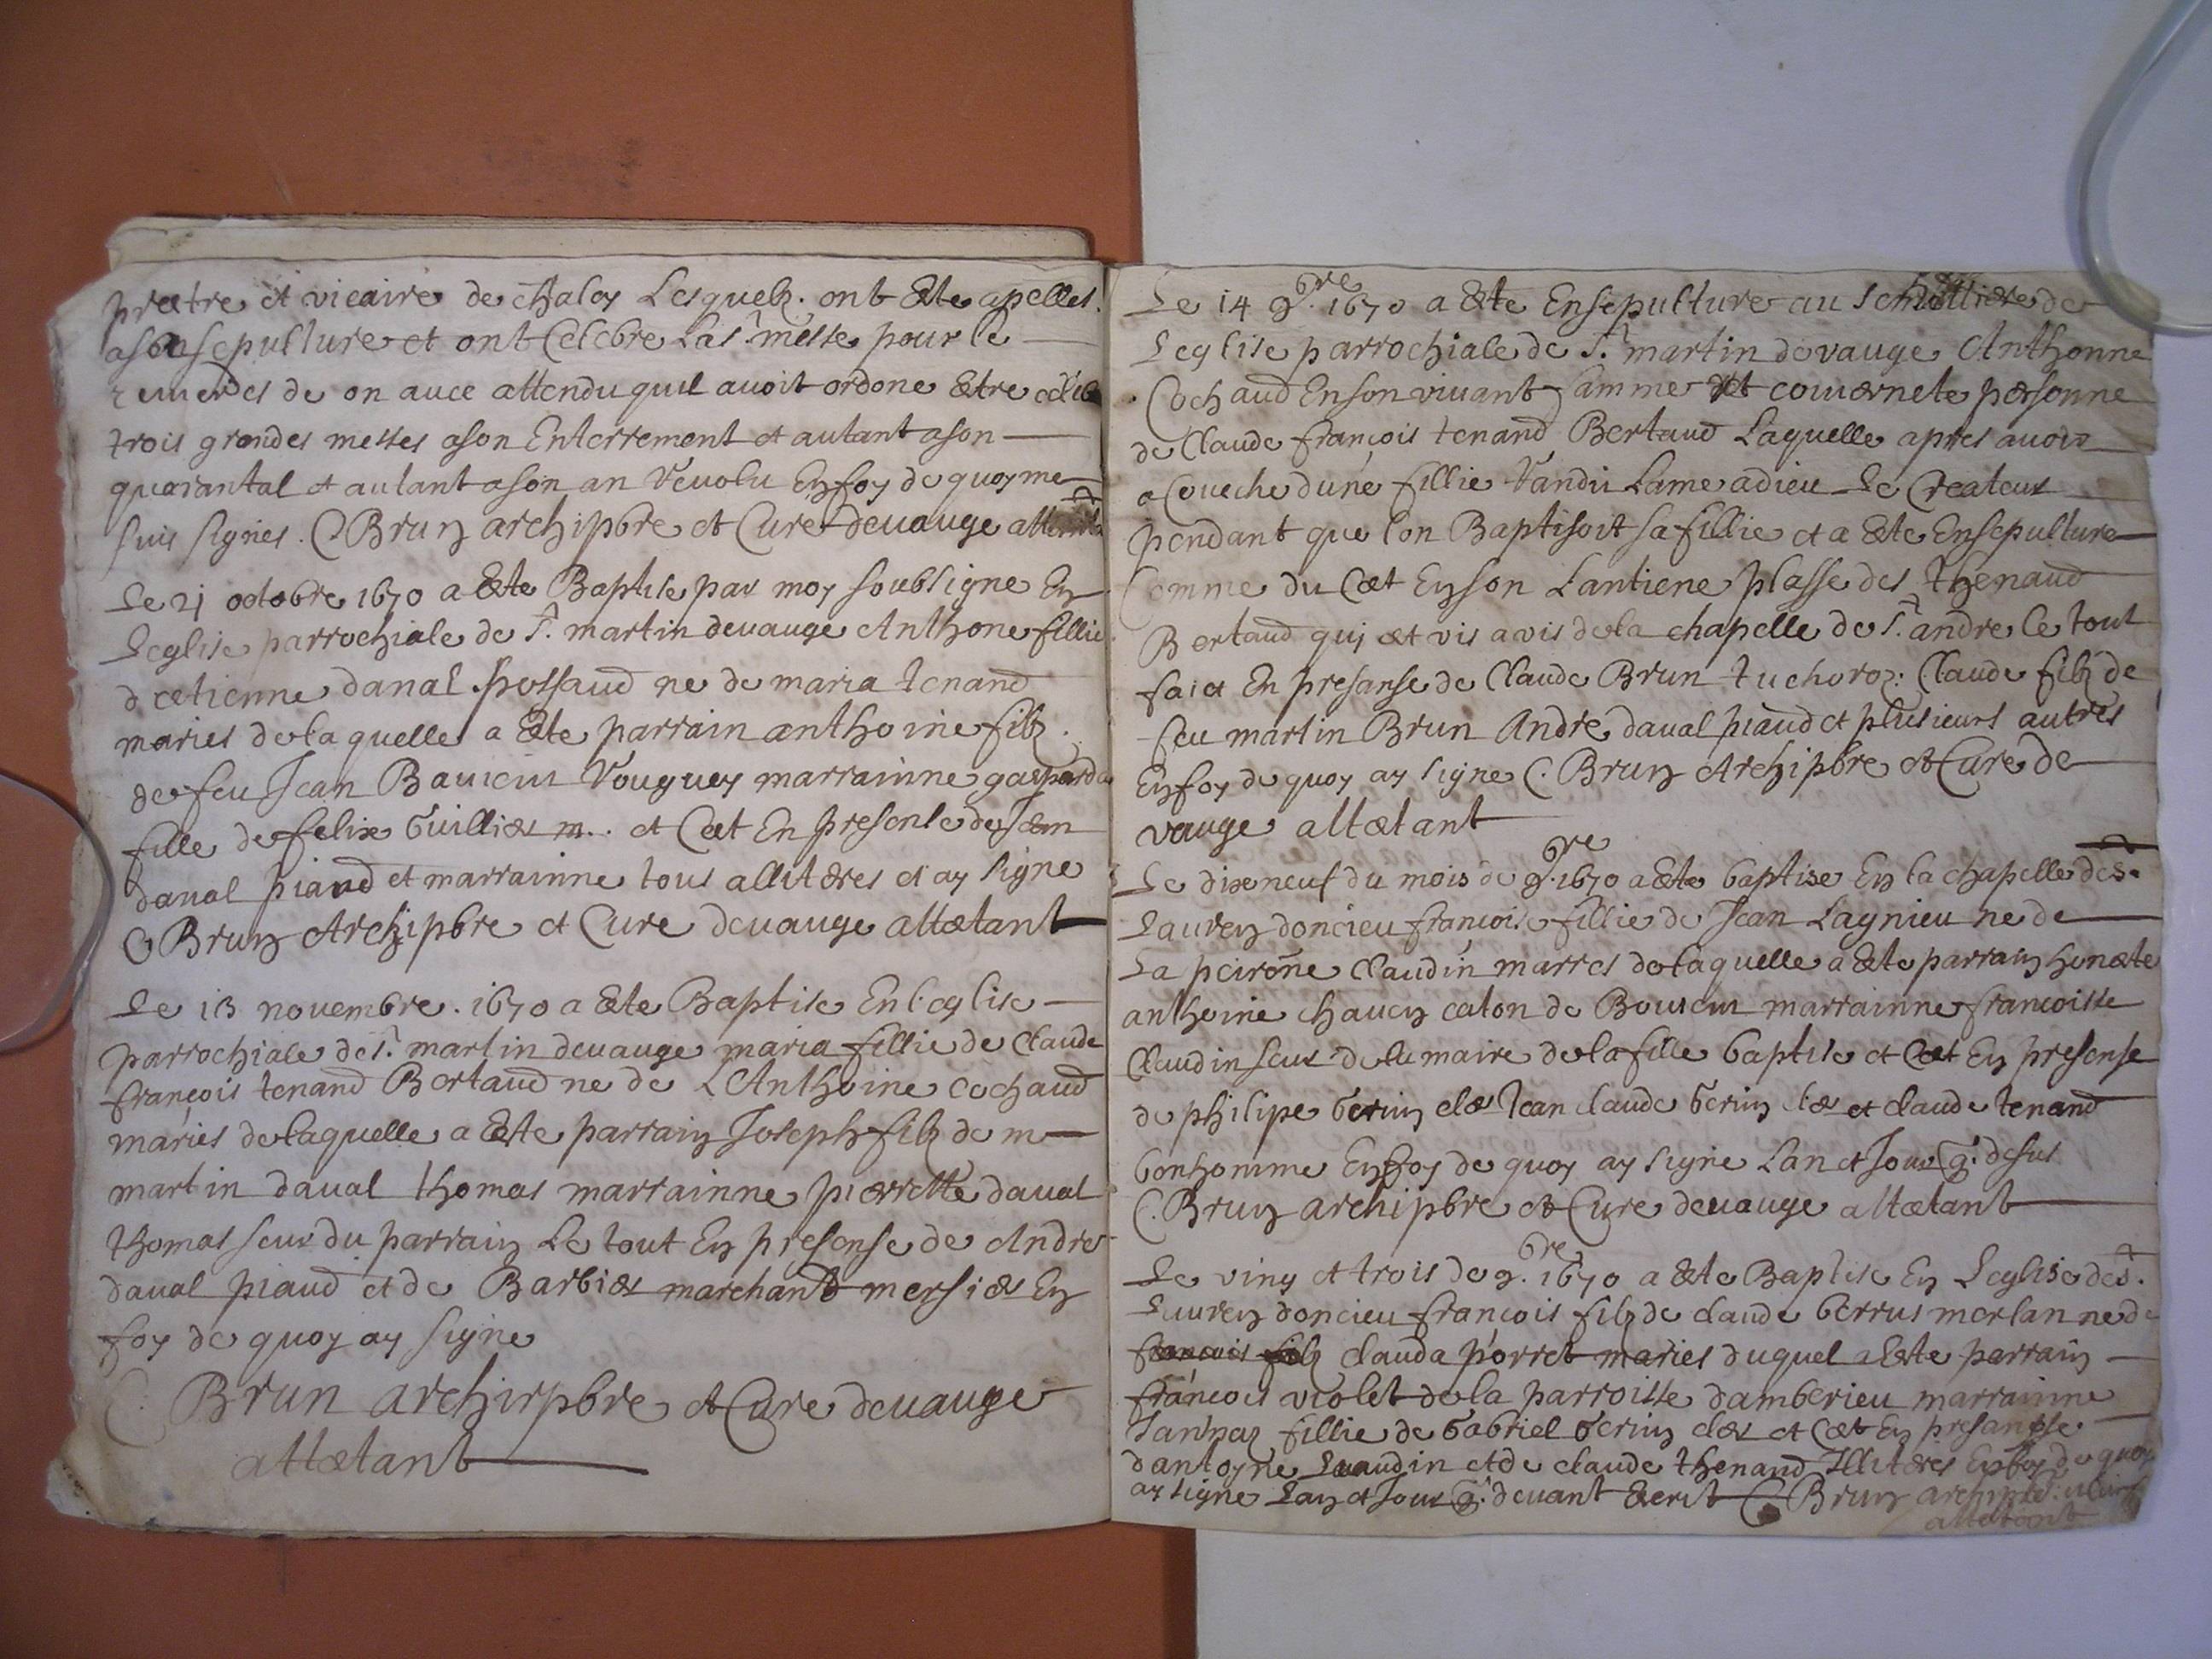 prætre et vicaire de chaley Lesquelz. ont Este apelles.
a son sepulture et ont Celebre La st messe pour le
remerdes de on auce attendu quil auoit ordone Etre celeb
trois grandes messes a son Enterrement et autant a son
quarantal et autant a son an Reuolu En foy de quoy me
suis signes. C Brun archipbre et Cure de vauge
Le 21 octobre 1670 a Este Baptise par moy soubsigne En
Leglise parrochiale de st. martin de vauge Anthone fillie
d ætienne daual possaud ne de maria tenand
maries de laquelle a Este parrain anthoine filz.
de feu Jean Bauieu Vouguey marrainne gasparda
fille de felix Guillier m.. et Cæt En presense de Jean
daual piaud et marrainne tous allitæres et ay signe
C Brun Archipbre et Cure de vauge attætant
Le 13 novembre. 1670 a Este Baptise En l eglise
parrochiale de st martin de vauge maria fillie de Claude
françois tenand Bertaud ne de L Anthoine cochaud
maries de laquelle a Este parrain Joseph filz de m
martin daual thomas marrainne pierrette daual
thomas seur du parrain Le tout En presense de Andre
daual piaud et de Barbier marchant mersier En
foy de quoy ay signe
C. Brun archirpbre et Cure de vauge
attætant
Le 14 9.bre 1670 a Este Ensepulture au semittiære de
Leglise parrochiale de st. martin de vauge Anthonne
Cochaud En son viuant famme et couærnete personne
de Claude françois tenand Bertaud Laquelle apres auoir
a Coueche dune fillie Randu Lame a dieu Le Createur
pendant que lon Baptisoit sa fillie et a Este Ensepulture
Comme du Cæt En son Lantiene plasse des Thenaud
Bertaud qui æt vis a vis de la chapelle de st. andre le tout
faict En presanse de Claude Brun tuchoroz: Claude filz de
feu martin Brun Andre daual piaud et plusieurs autres
En foy de quoy ay signe C. Brun Archipbre et Cure de
vauge attætant
Le dixeneuf du mois de 9.bre 1670 a Este baptise En la chapelle de st.
Lauren doncieu françoise fillie de Jean Lagnieu ne de
La peirone Claudin marres de laquelle a Este parrain honæte
anthoine chaucy caton de Bouieu marrainne francoisse
Claudin seur de la maire de la fille baptise et Cæt En presense
de philipe berin clær Jean claude berin clær et claude tenand
bonhomme En foy de quoy ay signe Lan et Jour q: desus
C. Brun archipbre et Cure de vauge attætant
Le viny et trois de 9.bre 1670 a Este Baptise En Leglise de st.
Lauren doncieu françois filz de claude berrus merlan ne de
francois filz clauda porret maries duquel a Este parrain
françois violet de la parroisse damberieu marrainne
Janhaz fillie de Gabriel berin clær et Cæt En presansse
dantoyne Claudin et de claude thenand Illitæres En foy de quoy
ay signe Lan et Jour q: deuant Ecrit C Brun
attætant